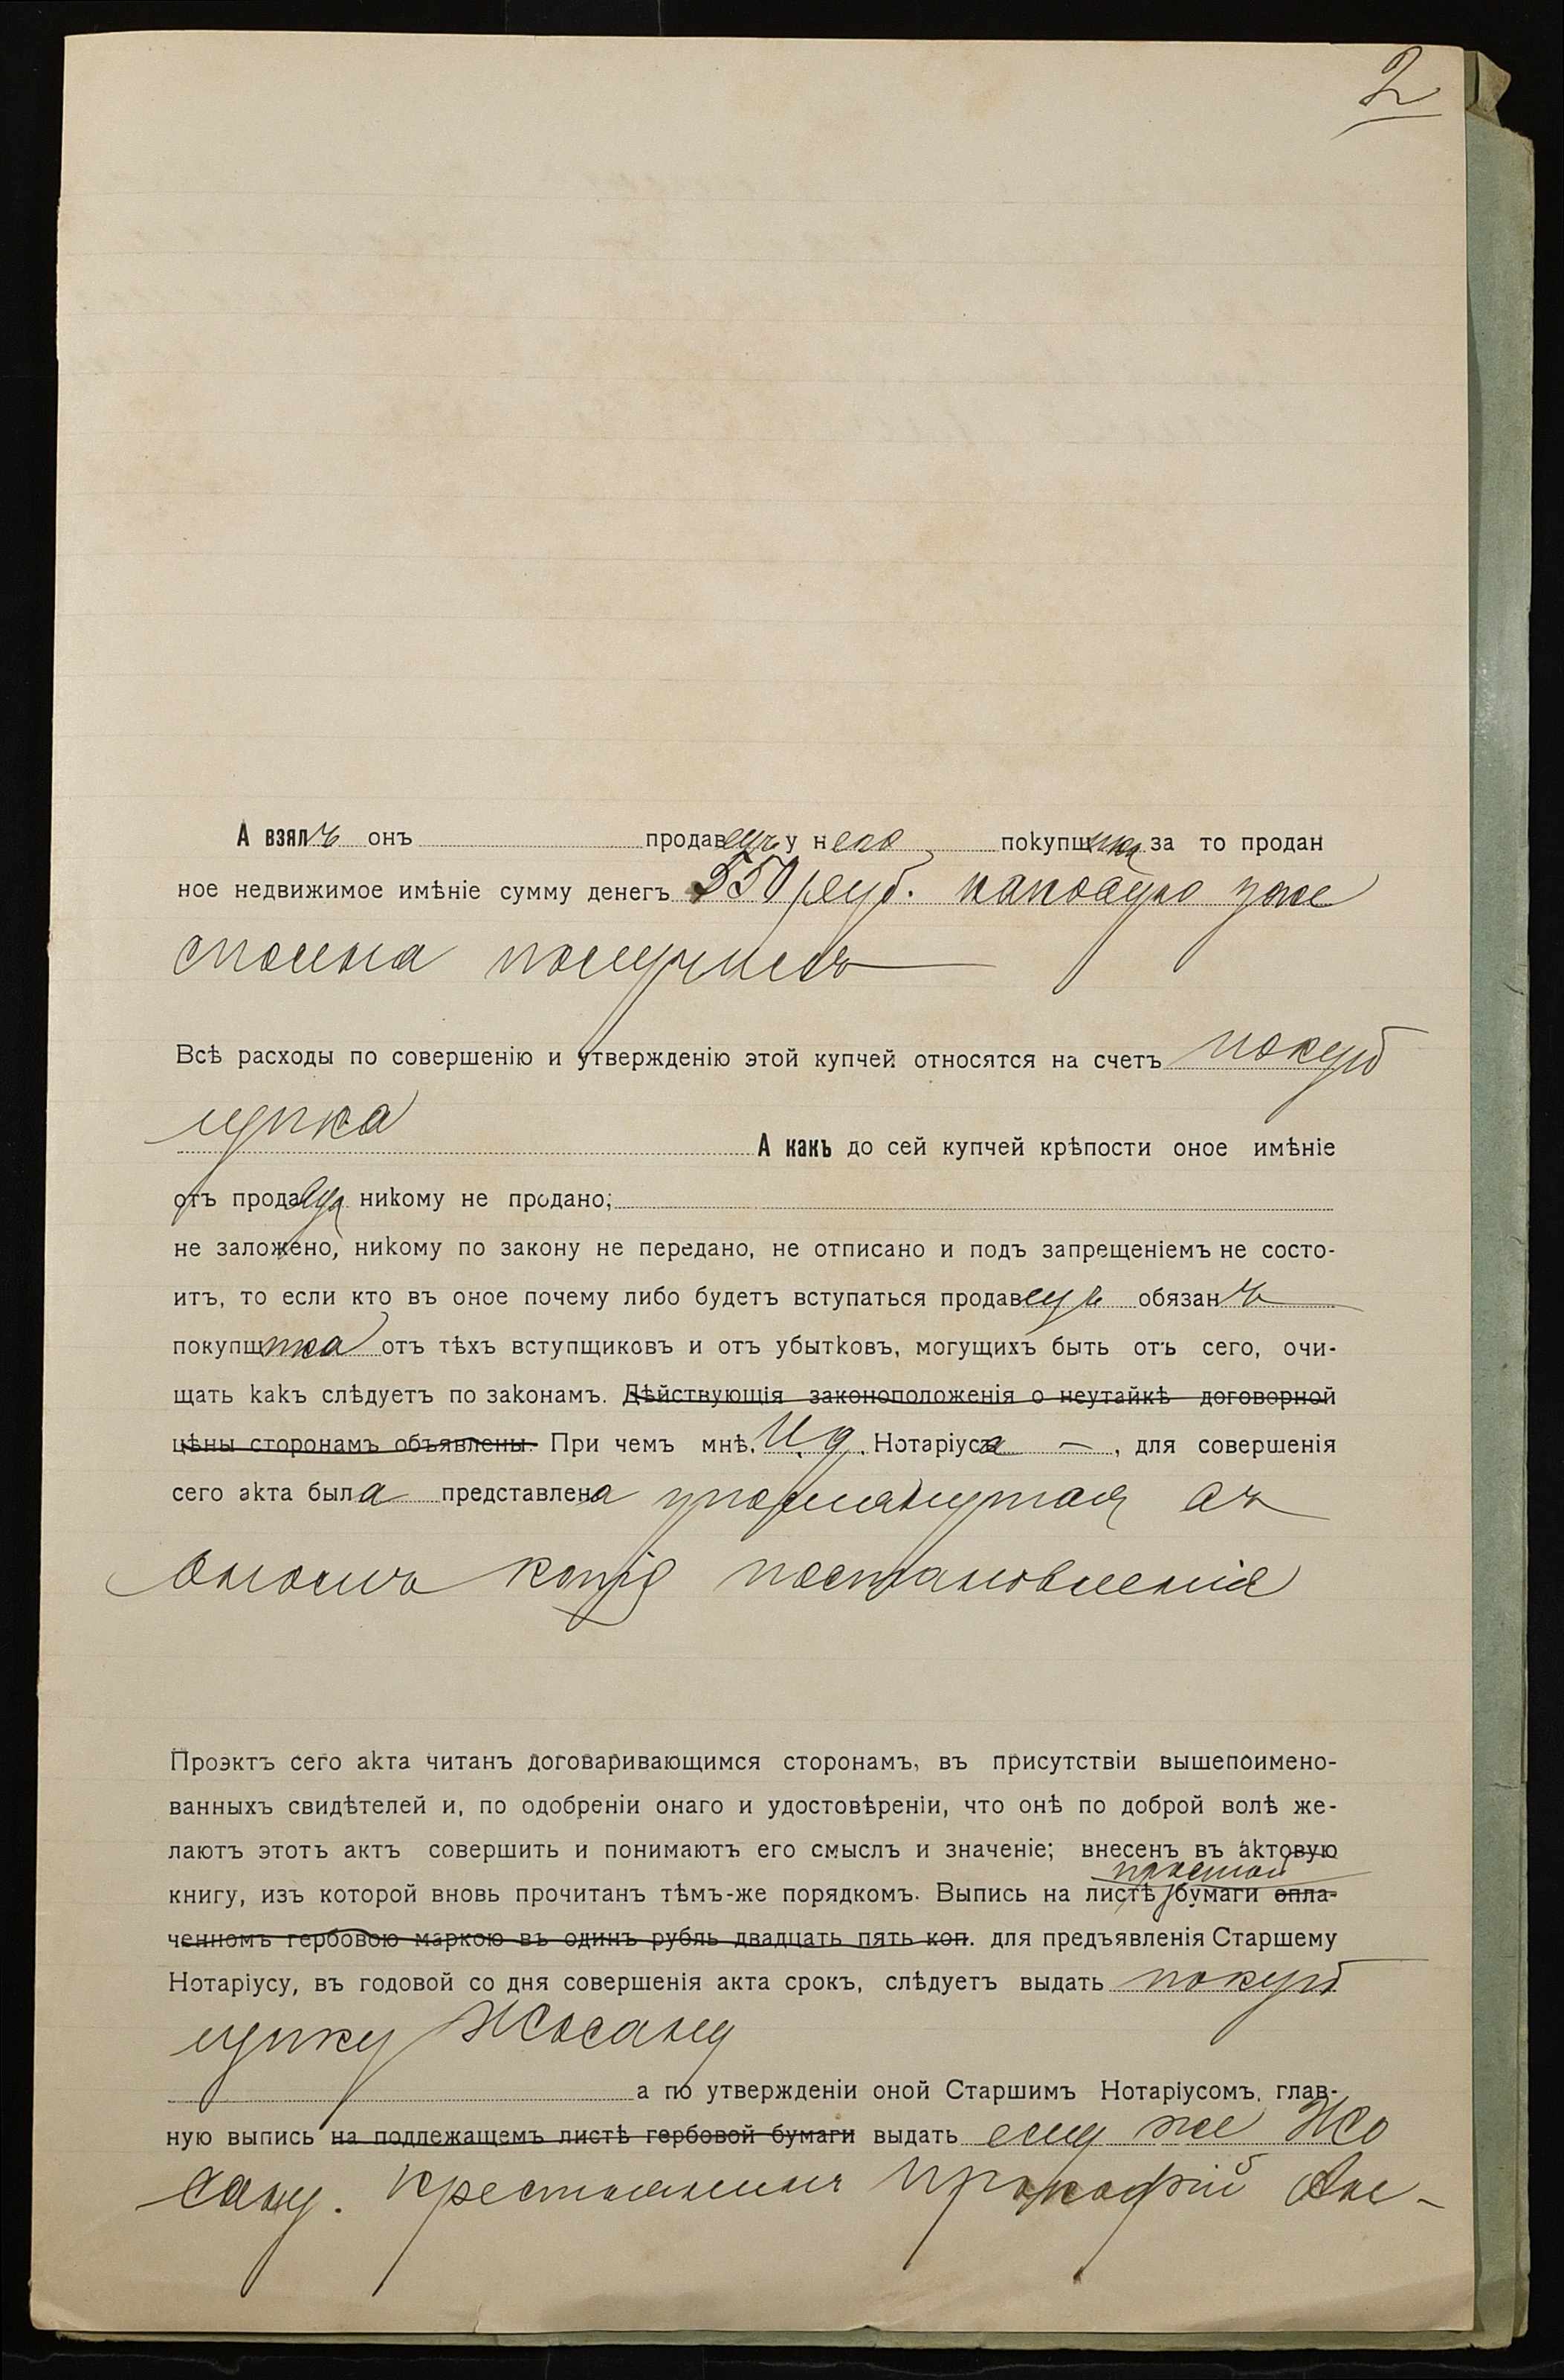 2
А взялъ онъ продавецъ у него покупщика за то продан
ное недвижимое имѣніе сумму денегъ 550 руб. каковую уже
сполна получилъ
Всѣ расходы по совершенію и утвержденію этой купчей относятся на счетъ покуп
щика
А какъ до сей купчей крѣпости оное имѣніе
отъ продавца никому не продано;
не заложено, никому по закону не передано, не отписано и подъ запрещеніемъ не состо-
итъ, то если кто въ оное почему либо будетъ вступаться продавецъ обязанъ
покупщика отъ тѣхъ вступщиковъ и отъ убытковъ, могущихъ быть отъ сего, очи-
щать какъ слѣдуетъ по законамъ. Дѣйствующія законоположенія о неутайкѣ договорной
цѣны сторонамъ объявлены. При чемъ мнѣ, И. д. Нотаріуса —, для совершенія
сего акта была представлена упомянутая въ
ономъ копія постановленія
Проэктъ сего акта читанъ договаривающимся сторонамъ, въ присутствіи вышепоимено-
ванныхъ свидѣтелей и, по одобреніи онаго и удостовѣреніи, что онѣ по доброй волѣ же-
лаютъ этотъ актъ совершить и понимаютъ его смыслъ и значеніе; внесенъ въ актовую
простой
книгу, изъ которой вновь прочитанъ тѣмъ-же порядкомъ. Выпись на листѣ бумаги опла-
ченномъ гербовою маркою въ одинъ рубль двадцать пять коп. для предъявленія Старшему
Нотаріусу, въ годовой со дня совершенія акта срокъ, слѣдуетъ выдать покуп
щику Жосану
а по утвержденіи оной Старшимъ Нотаріусомъ, глав-
ную выпись на подлежащемъ листѣ гербовой бумаги выдать ему же Жо
сану. Крестьянинъ Прокофій